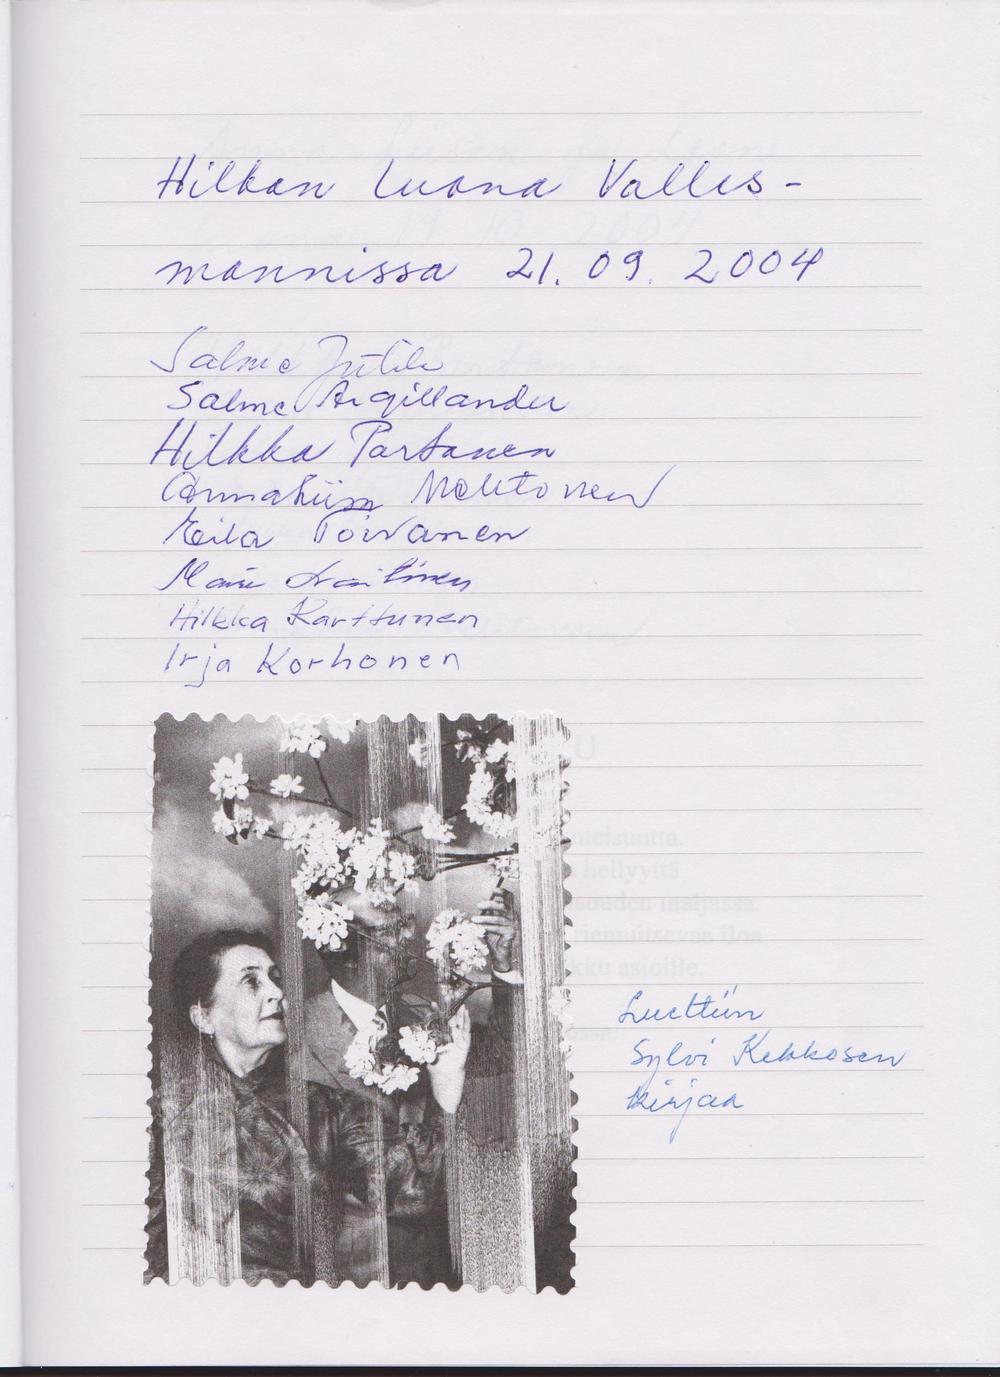 Hilkan luona Valles-
mannissa 21.09.2004
Salme
Salme Argillander
Hilkka Partanen
Annaliisa
Eila Toivanen
Hilkka Karttunen
Irja Korhonen
Luettiin
Sylvi Kekkosen
kirjaa